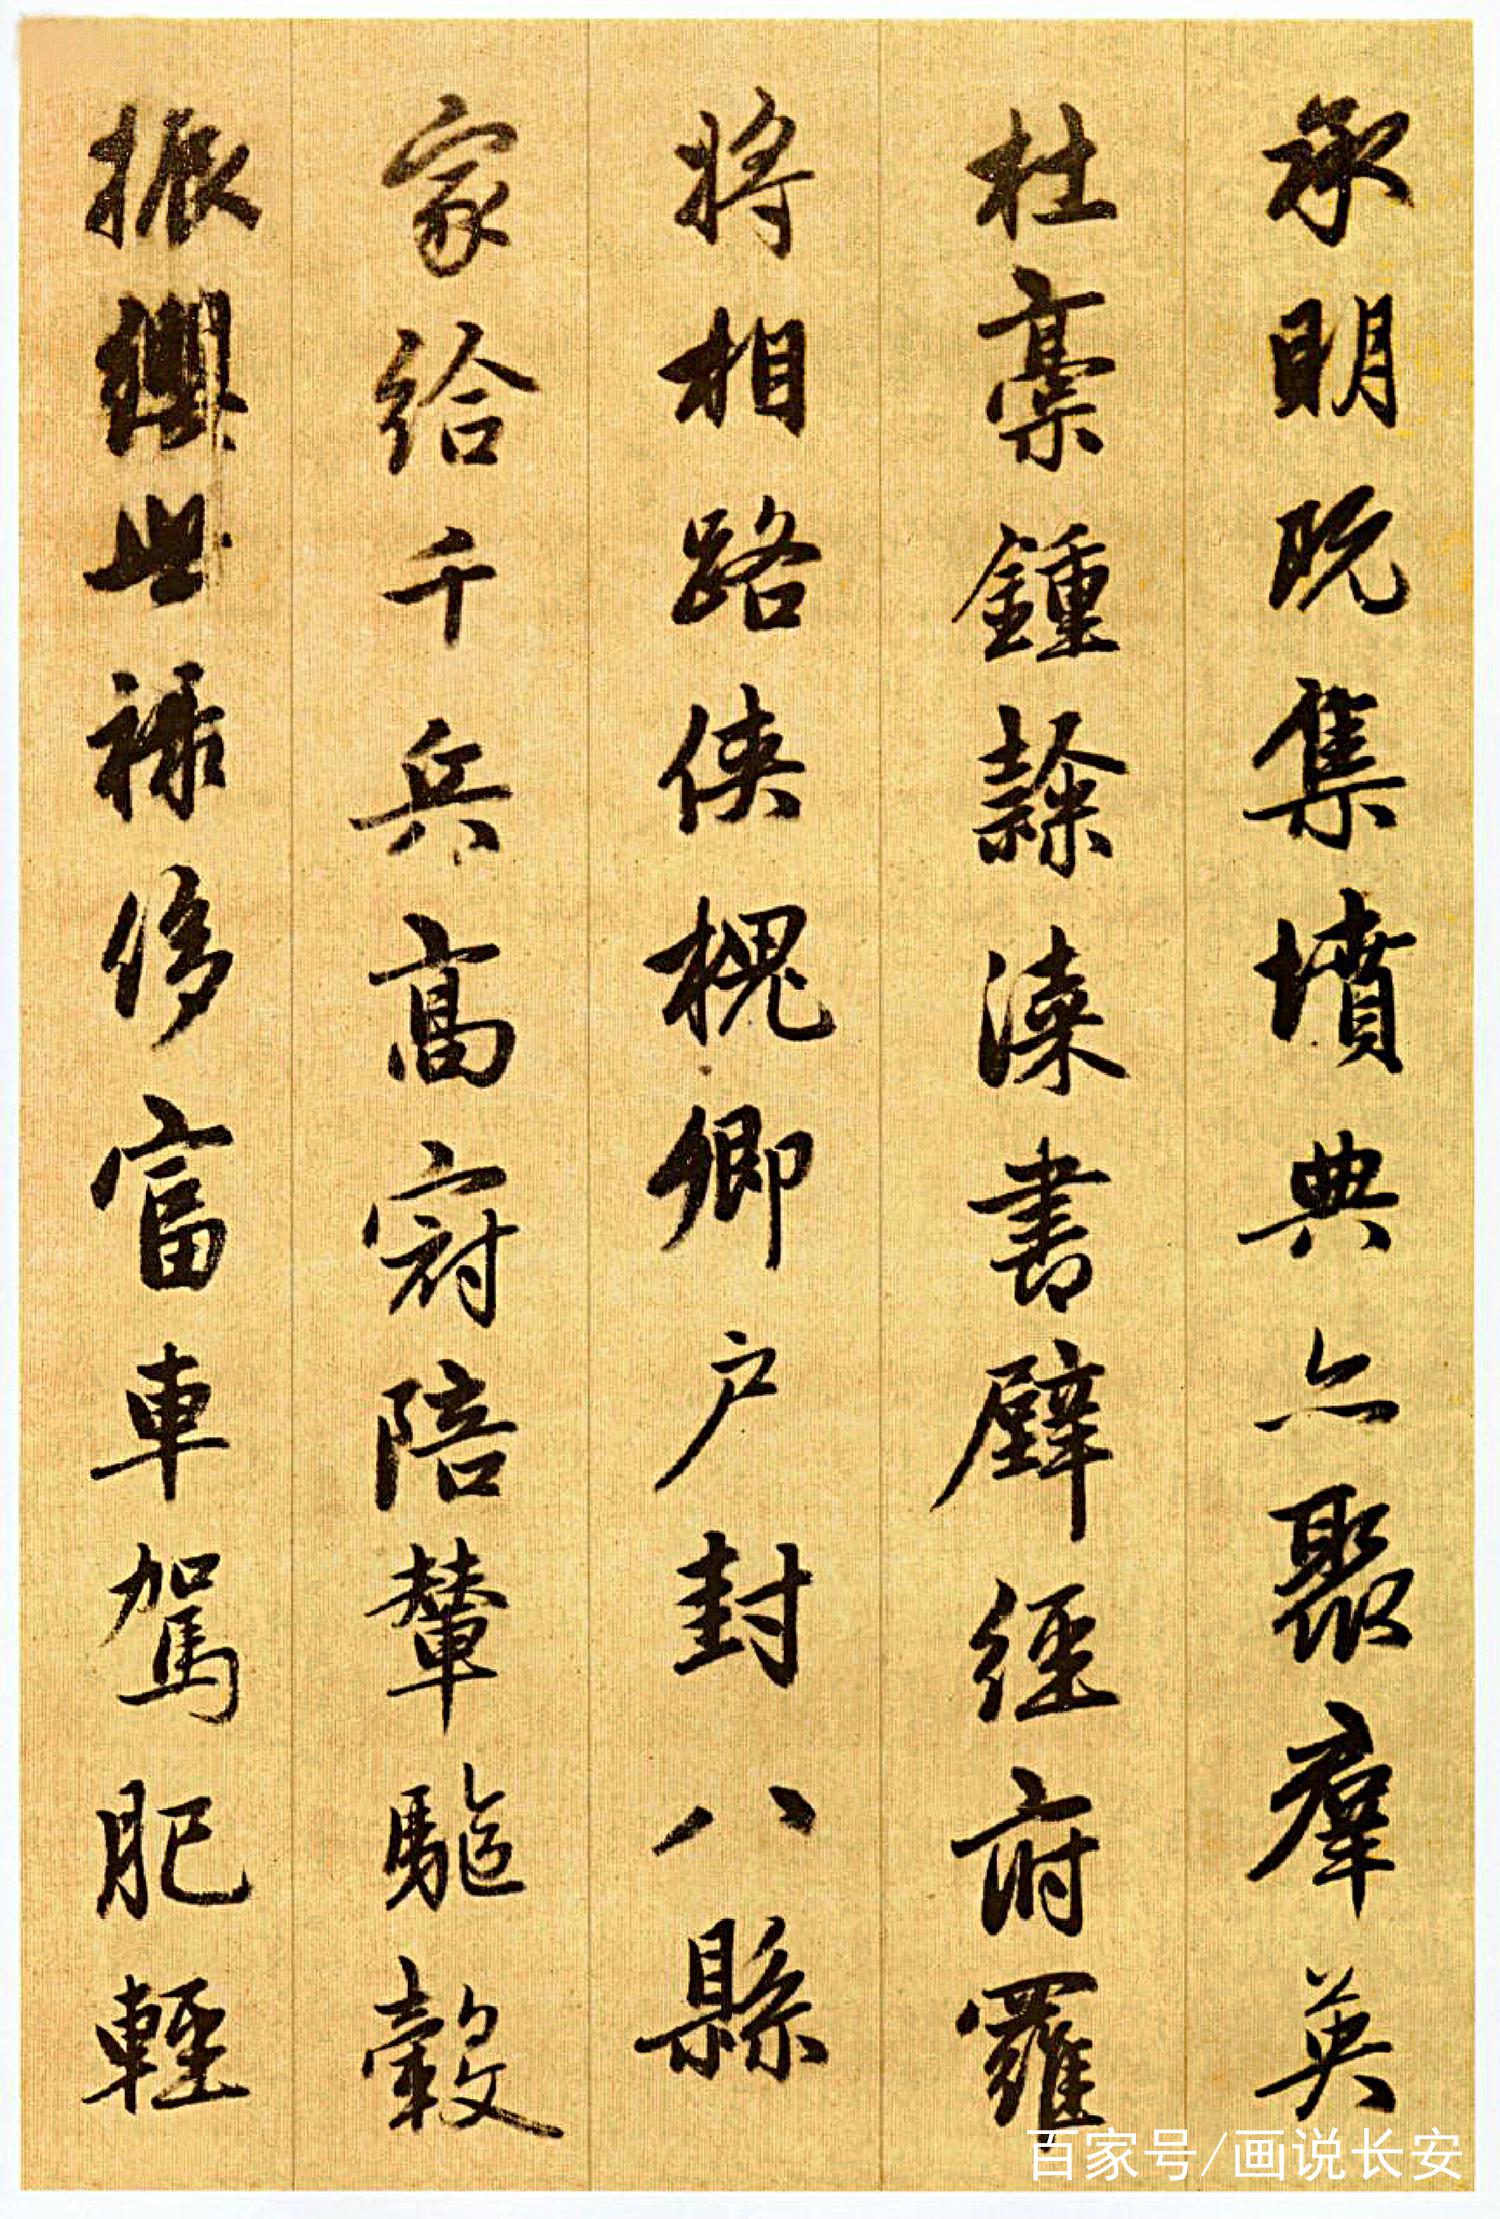 承明既集墳典亦聚羣英
杜稾鍾隸漆書壁經府羅
將相路俠槐卿户封八縣
家給千兵高冠陪輦驅轂
振纓世祿侈富車駕肥輕
百家号/画说长安